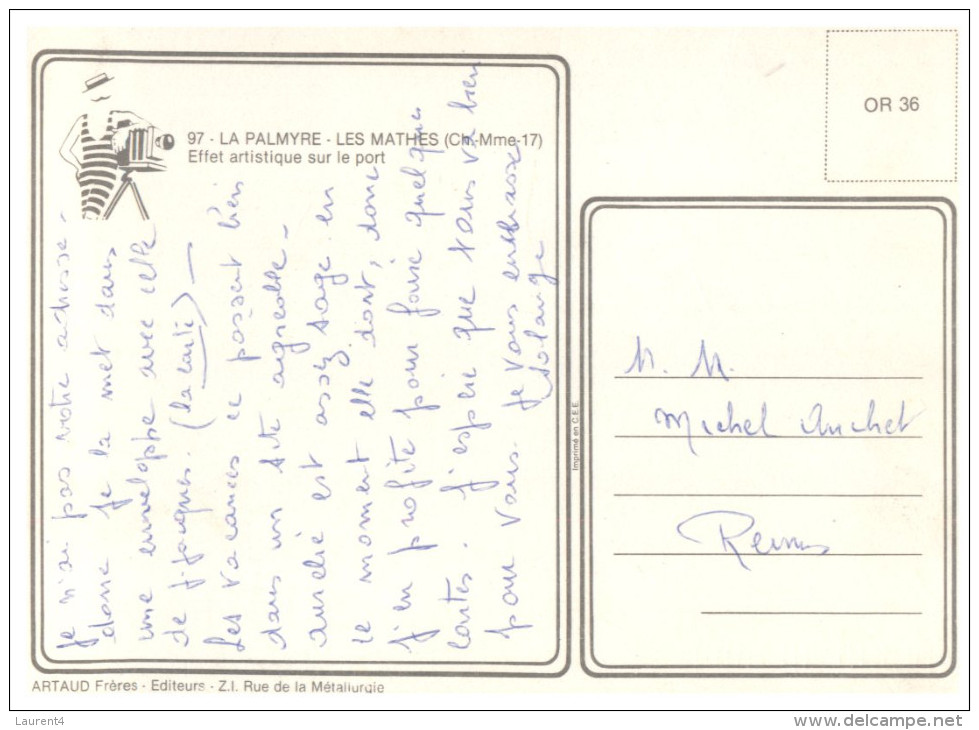 97 - LA PALMYRE - LES MATHES (Ch-Mme-17)
Effet artistique sur le port
OR 36
je n'ai pas votre adresse -
donc je la met dans
une enveloppe avec celle
de J-Jacques. (la carte) —
Les vacances ce passent bien
dans un site agréable -
Aurelie est assez sage en
ce moment elle dort, donc
j'en profite pour faire quelques
cartes. J'espère que tous va bien
pour vous. Je vous embrasse
Solange
M. M.
Michel Anchet
Reims
Imprimé en C.E.E.
ARTAUD Frères - Editeurs - Z.I. Rue de la Métallurgie
Laurent4
www.delcampe.net